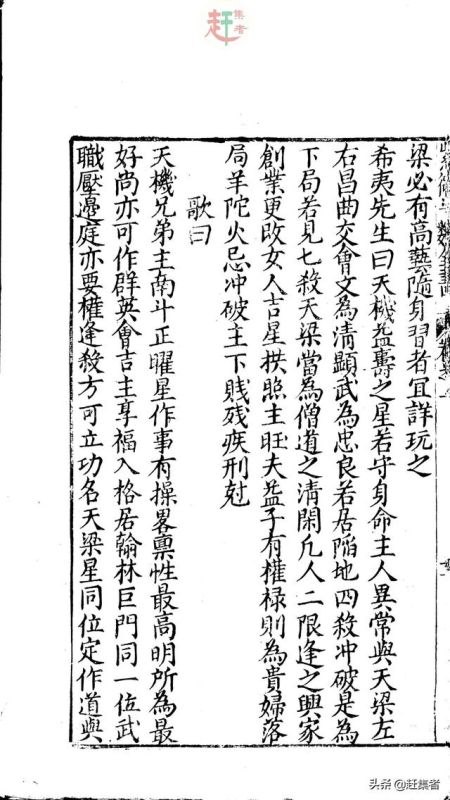 赶集者
梁必有高藝隨身習者宜詳玩之
希夷先生曰天機益壽之星若守身命主人異常與天梁左
右昌曲交會文為清顯武為忠良若居陷地四殺冲破是為
下局若見七殺天梁當為僧道之清閑凢人二限逢之興家
創業更改女人吉星拱照主旺夫益子有權祿則為貴婦落
局羊陀火忌冲破主下賤残疾刑尅
歌曰
天機兄弟主南斗正曜星作事有操畧稟性最高明所為最
好尚亦可作群英會吉主享福入格居翰林巨門同一位武
職壓邉庭亦要權逢殺方可立功名天梁星同位定作道與
头条 @赶集者